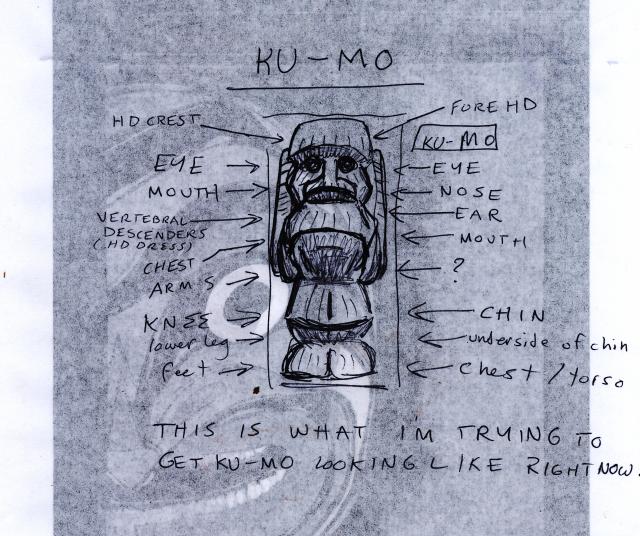 KU-MO
HD CREST
FORE HD
KU-MO
EYE
EYE
MOUTH
NOSE
VERTEBRAL
DESCENDERS
(HD DRESS)
EAR
MOUTH
CHEST
?
ARMS
KNEE
CHIN
lower leg
underside of chin
feet
Chest / Torso
THIS IS WHAT I'M TRYING TO
GET KU-MO LOOKING LIKE RIGHT NOW.